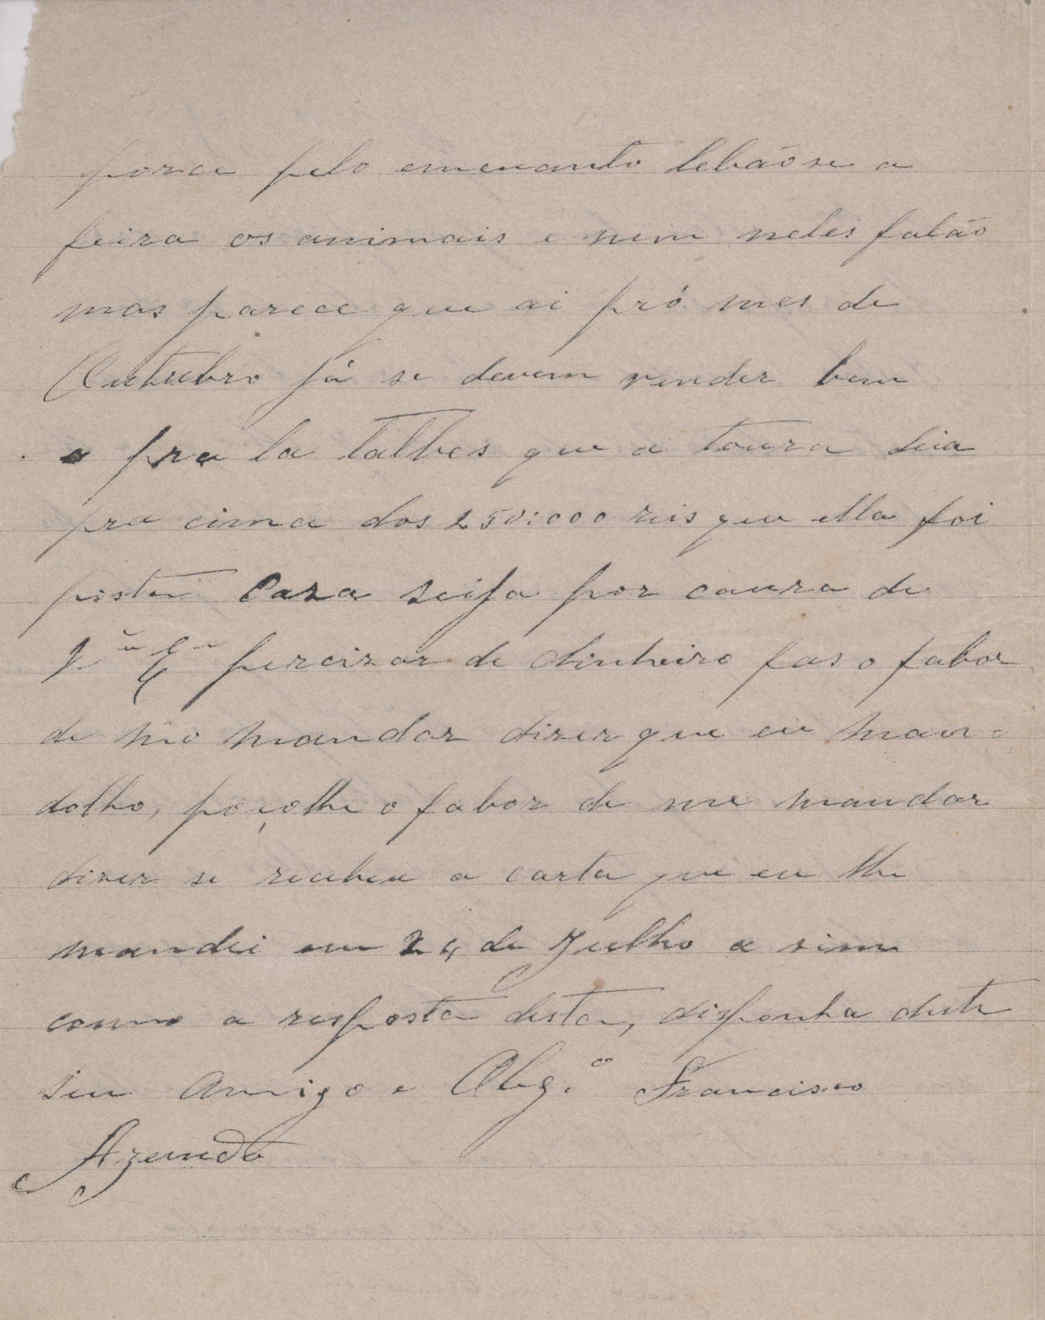 porce pelo emcuanto lebãose a
feira os animais e nem neles falão
mas parece que ai pró mes de
Outubro já se devem vender bem
e pra la talbes que a toura seia
pra cima dos 250:000 reis que ella foi
posta Caza seija por cauza de
V.ª Ex.ª percizar de dinheiro fas o fabor
de mo mandar dizer que eu man-
dolho, peçolhe o fabor de me mandar
dizer se recebeu a carta que eu lhe
mandei em 24 de Julho a sim
como a resposta desta, disponha deste
seu Amigo e Obg.º Francisco
Azevedo